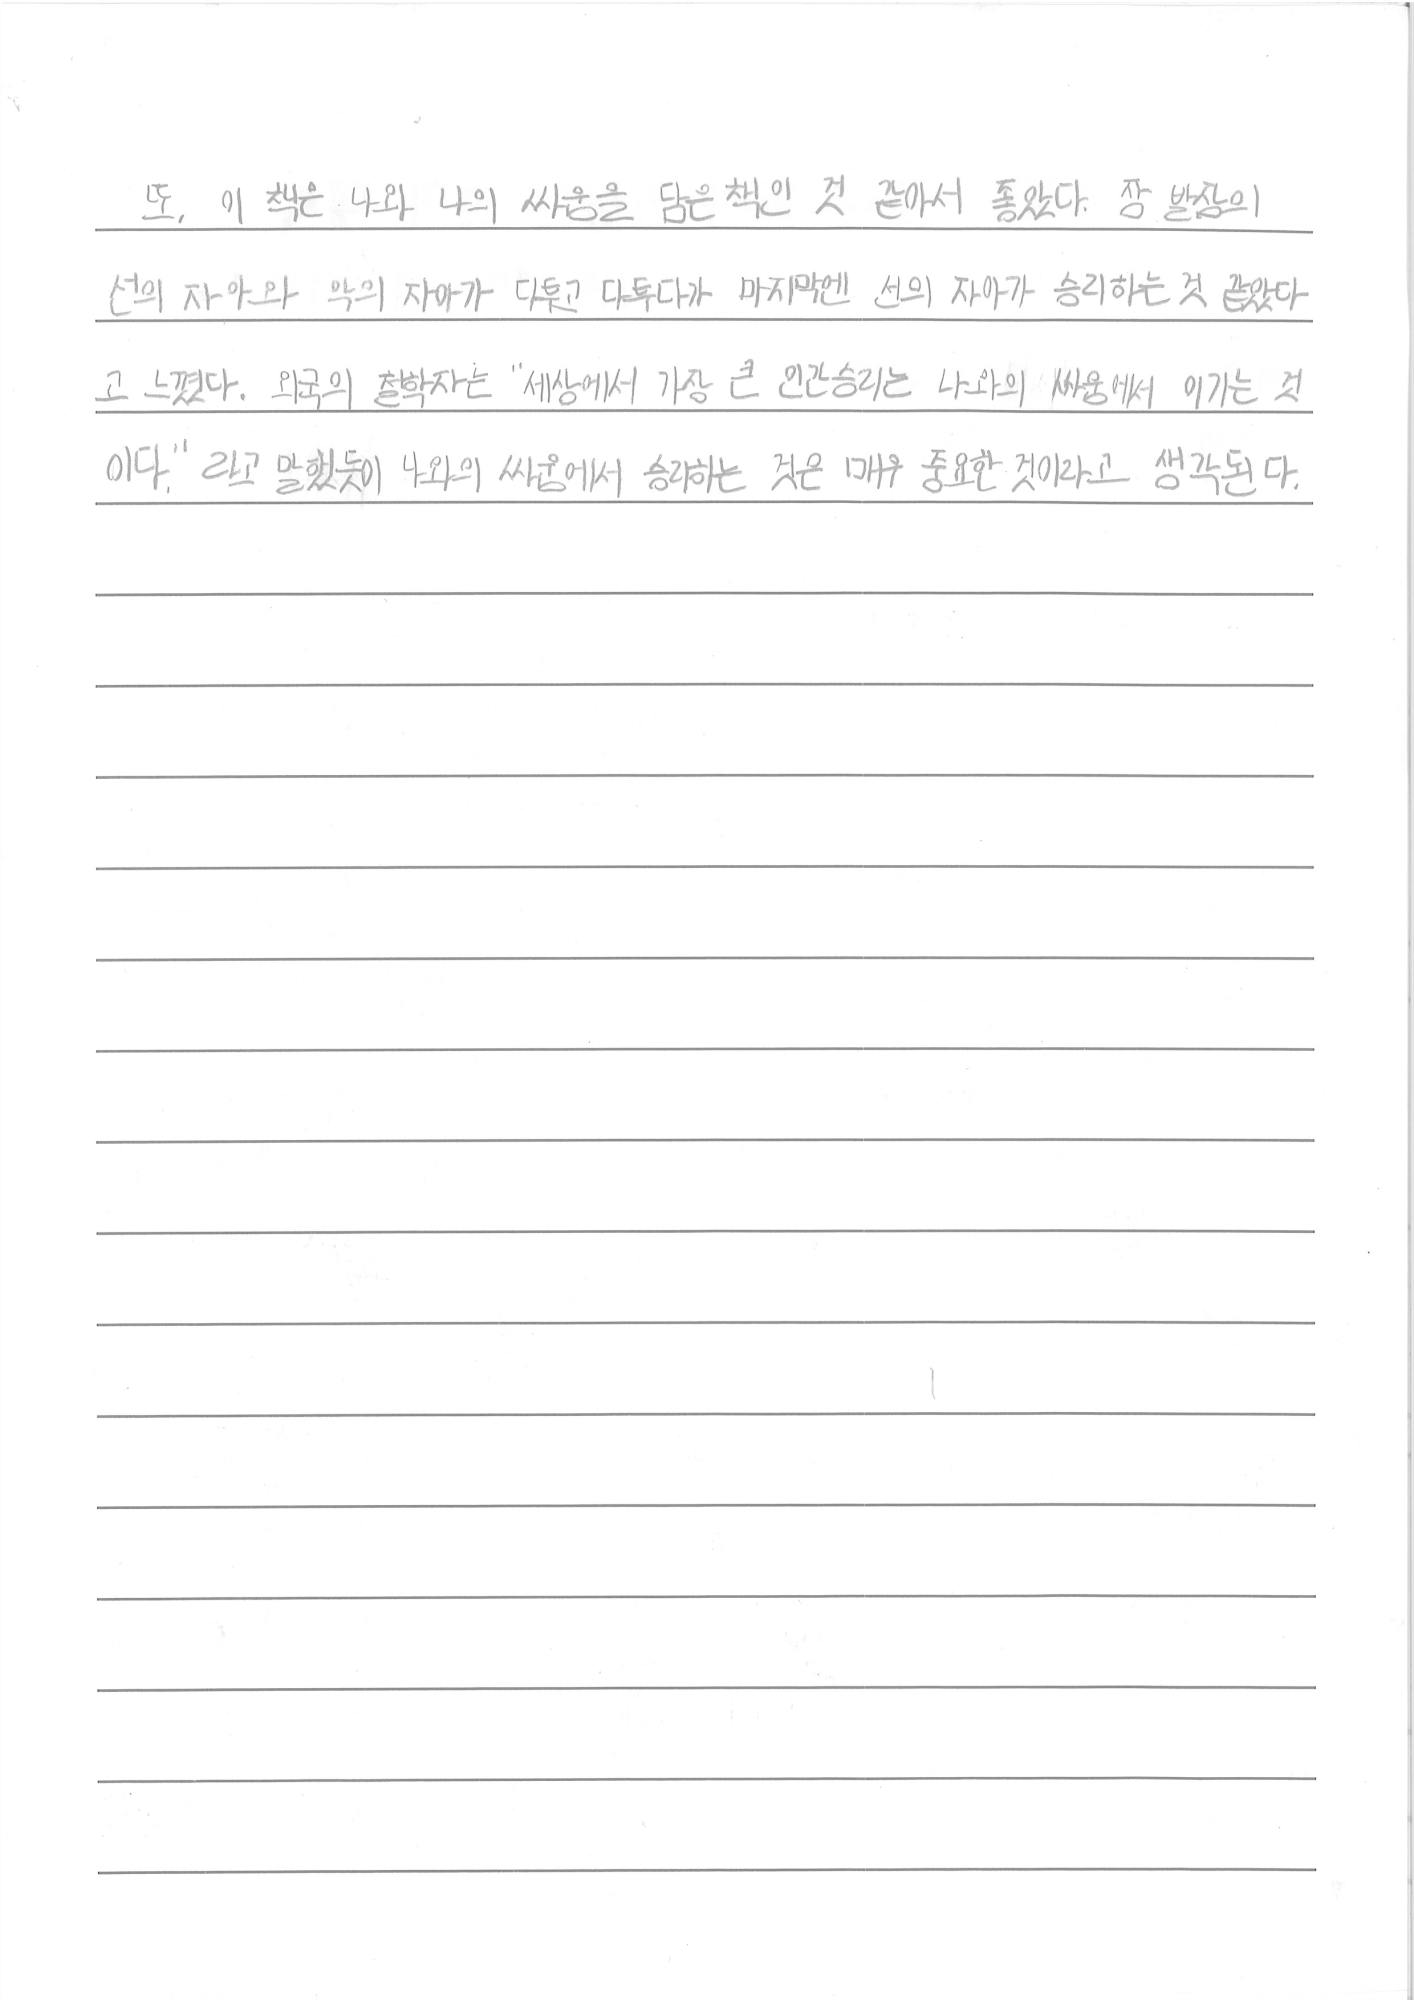 또, 이 책은 나와 나의 싸움을 담은 책인 것 같아서 좋았다. 장 발장의
선의 자아와 악의 자아가 다투고 다투다가 마지막엔 선의 자아가 승리하는 것 같았다
고 느꼈다. 외국의 철학자는 "세상에서 가장 큰 인간승리는 나와의 싸움에서 이기는 것
이다." 라고 말했듯이 나와의 싸움에서 승리하는 것은 매우 중요한 것이라고 생각된다.